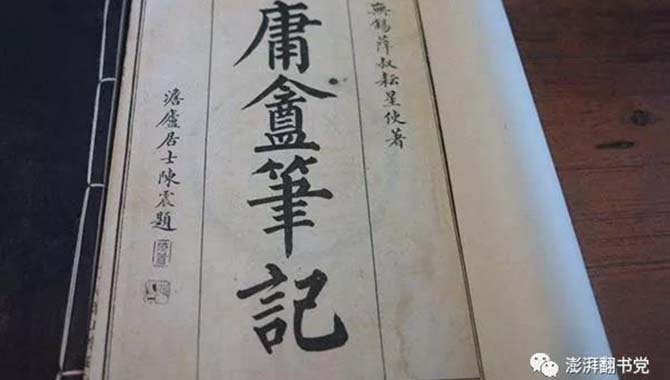 無錫薛叔耘星使著
庸盦筆記
澹廬居士陳震題
澎湃翻书党